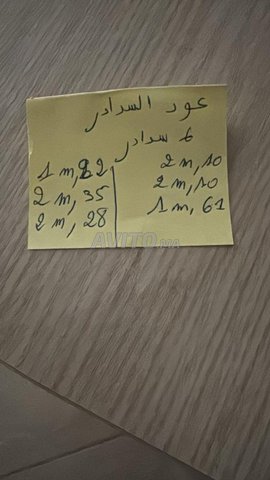 عود السدادر
6 سدادر
1 m, 82 2 m, 10
2 m, 35 2 m, 10
2 m, 28 1 m, 61
AVITO.ma